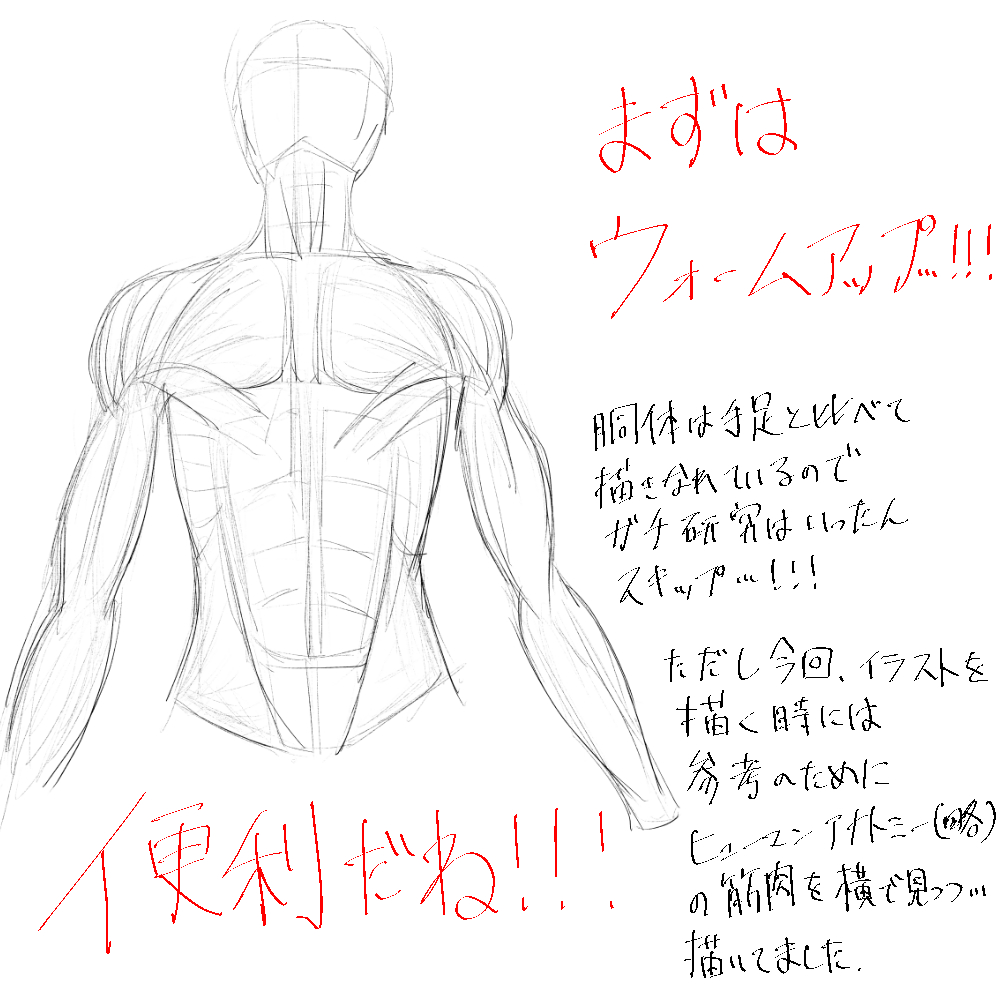 まずは
ウォームアップ!!!
胴体は手足と比べて
描きなれているので
ガチ研究はいったん
スキップ…!!!
ただし今回、イラストを
描く時には
参考のために
ヒューマンアナトミー(略)
の筋肉を横で見つつ…
描いてました.
便利だね!!!